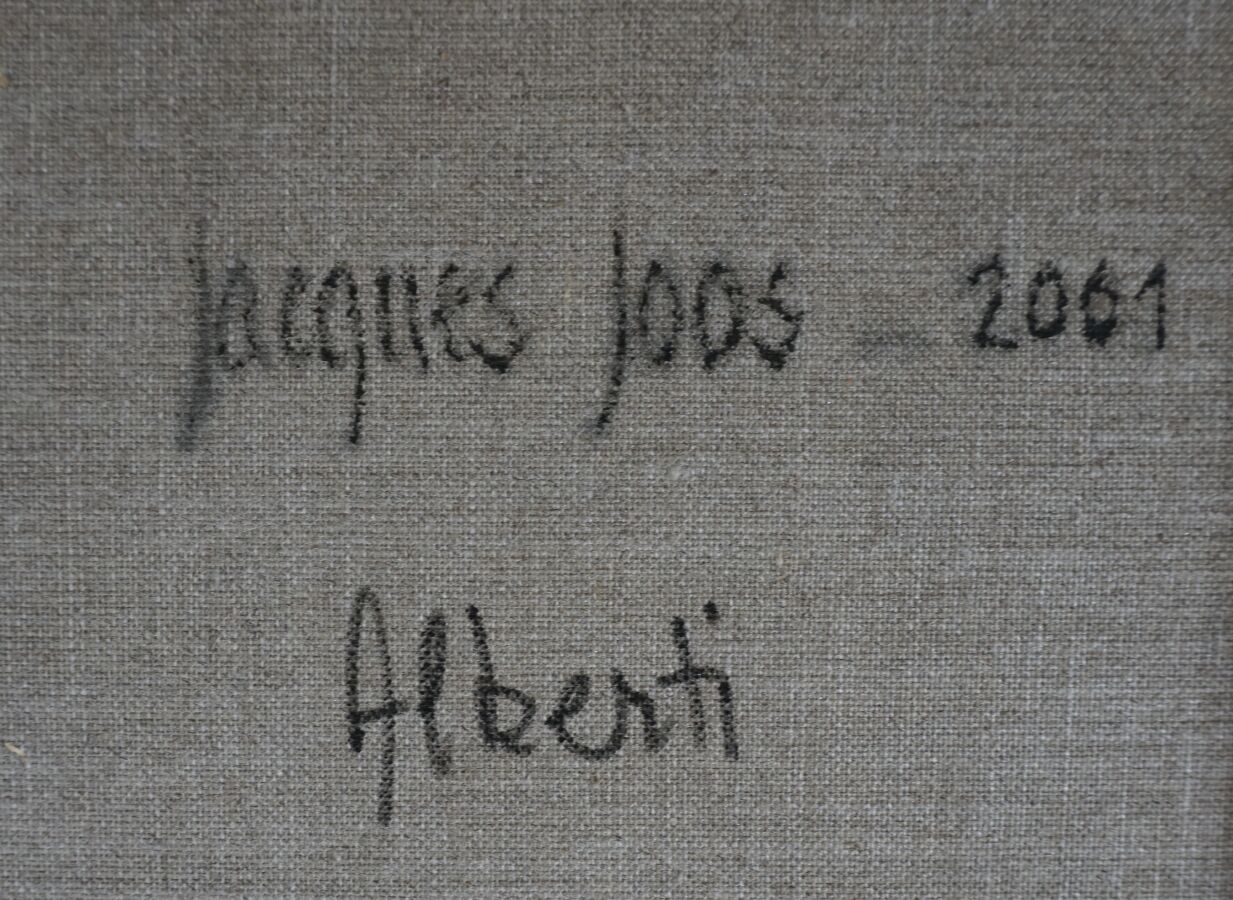 Jacques Joos - 2001
Alberti